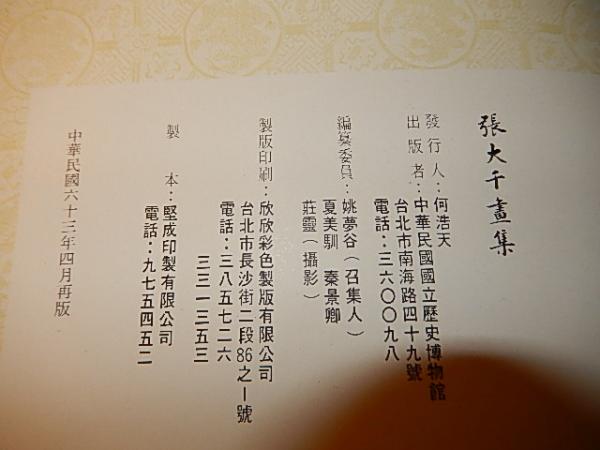 張大千畫集
發行人：何浩天
出版者：中華民國國立歷史博物館
台北市南海路四十九號
電話：三六〇〇九八
編纂委員：姚夢谷（召集人）
夏美馴 秦景卿
莊靈（攝影）
製版印刷：欣欣彩色製版有限公司
台北市長沙街二段86之一號
電話：三八五七二六
三三一三五三
製本：堅成印製有限公司
電話：九七五四五二
中華民國六十三年四月再版